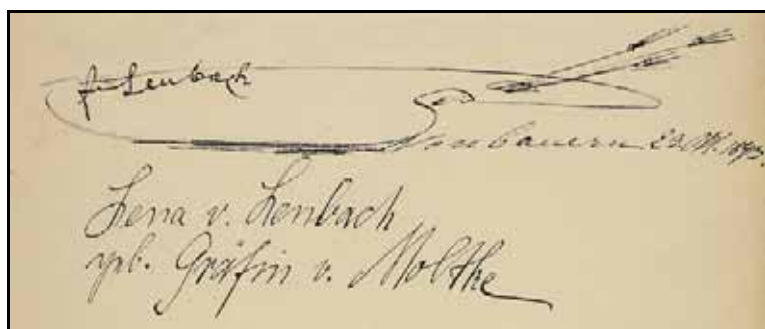 F Lenbach
Lena v. Lenbach
geb. Gräfin v. Moltke